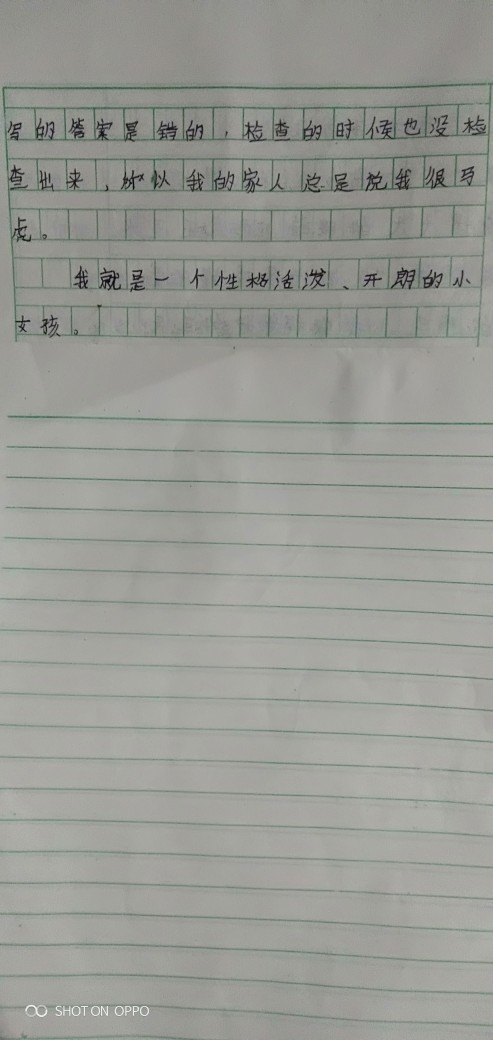 写的答案是错的，检查的时候也没检
查出来，所以我的家人总是说我很马
虎。
我就是一个性格活泼、开朗的小
女孩。
SHOT ON OPPO